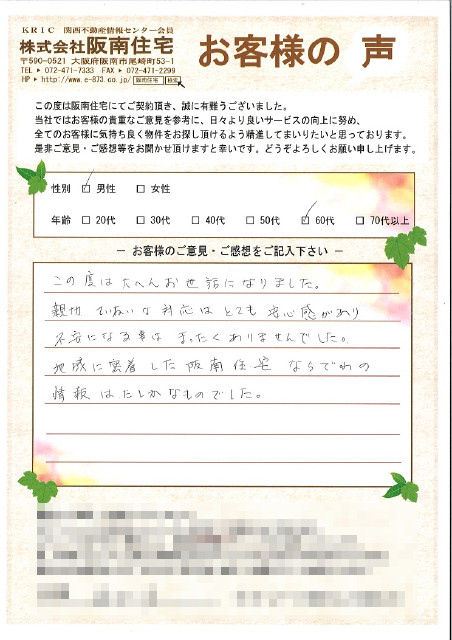 KRIC 関西不動産情報センター会員
株式会社阪南住宅
〒590-0521 大阪府阪南市尾崎町53-1
TEL ▸ 072-471-7333 FAX ▸ 072-471-2299
HP ▸ http://www.e-873.co.jp/ 阪南住宅 検索
お客様の 声
この度は阪南住宅にてご契約頂き、誠に有難うございました。
当社ではお客様の貴重なご意見を参考に、日々より良いサービスの向上に努め、
全てのお客様に気持ち良く物件をお探し頂けるよう精進してまいりたいと思っております。
是非ご意見・ご感想等をお聞かせ頂けますと幸いです。どうぞよろしくお願い申し上げます。
性別 □ 男性 □ 女性
年齢 □ 20代 □ 30代 □ 40代 □ 50代 □ 60代 □ 70代以上
― お客様のご意見・ご感想をご記入下さい ―
この度は大へんお世話になりました。
親切 ていねいな対応は とても 安心感があり
不安になる事は まったくありませんでした。
地域に密着した阪南住宅 ならでわの
情報はたしかなものでした。